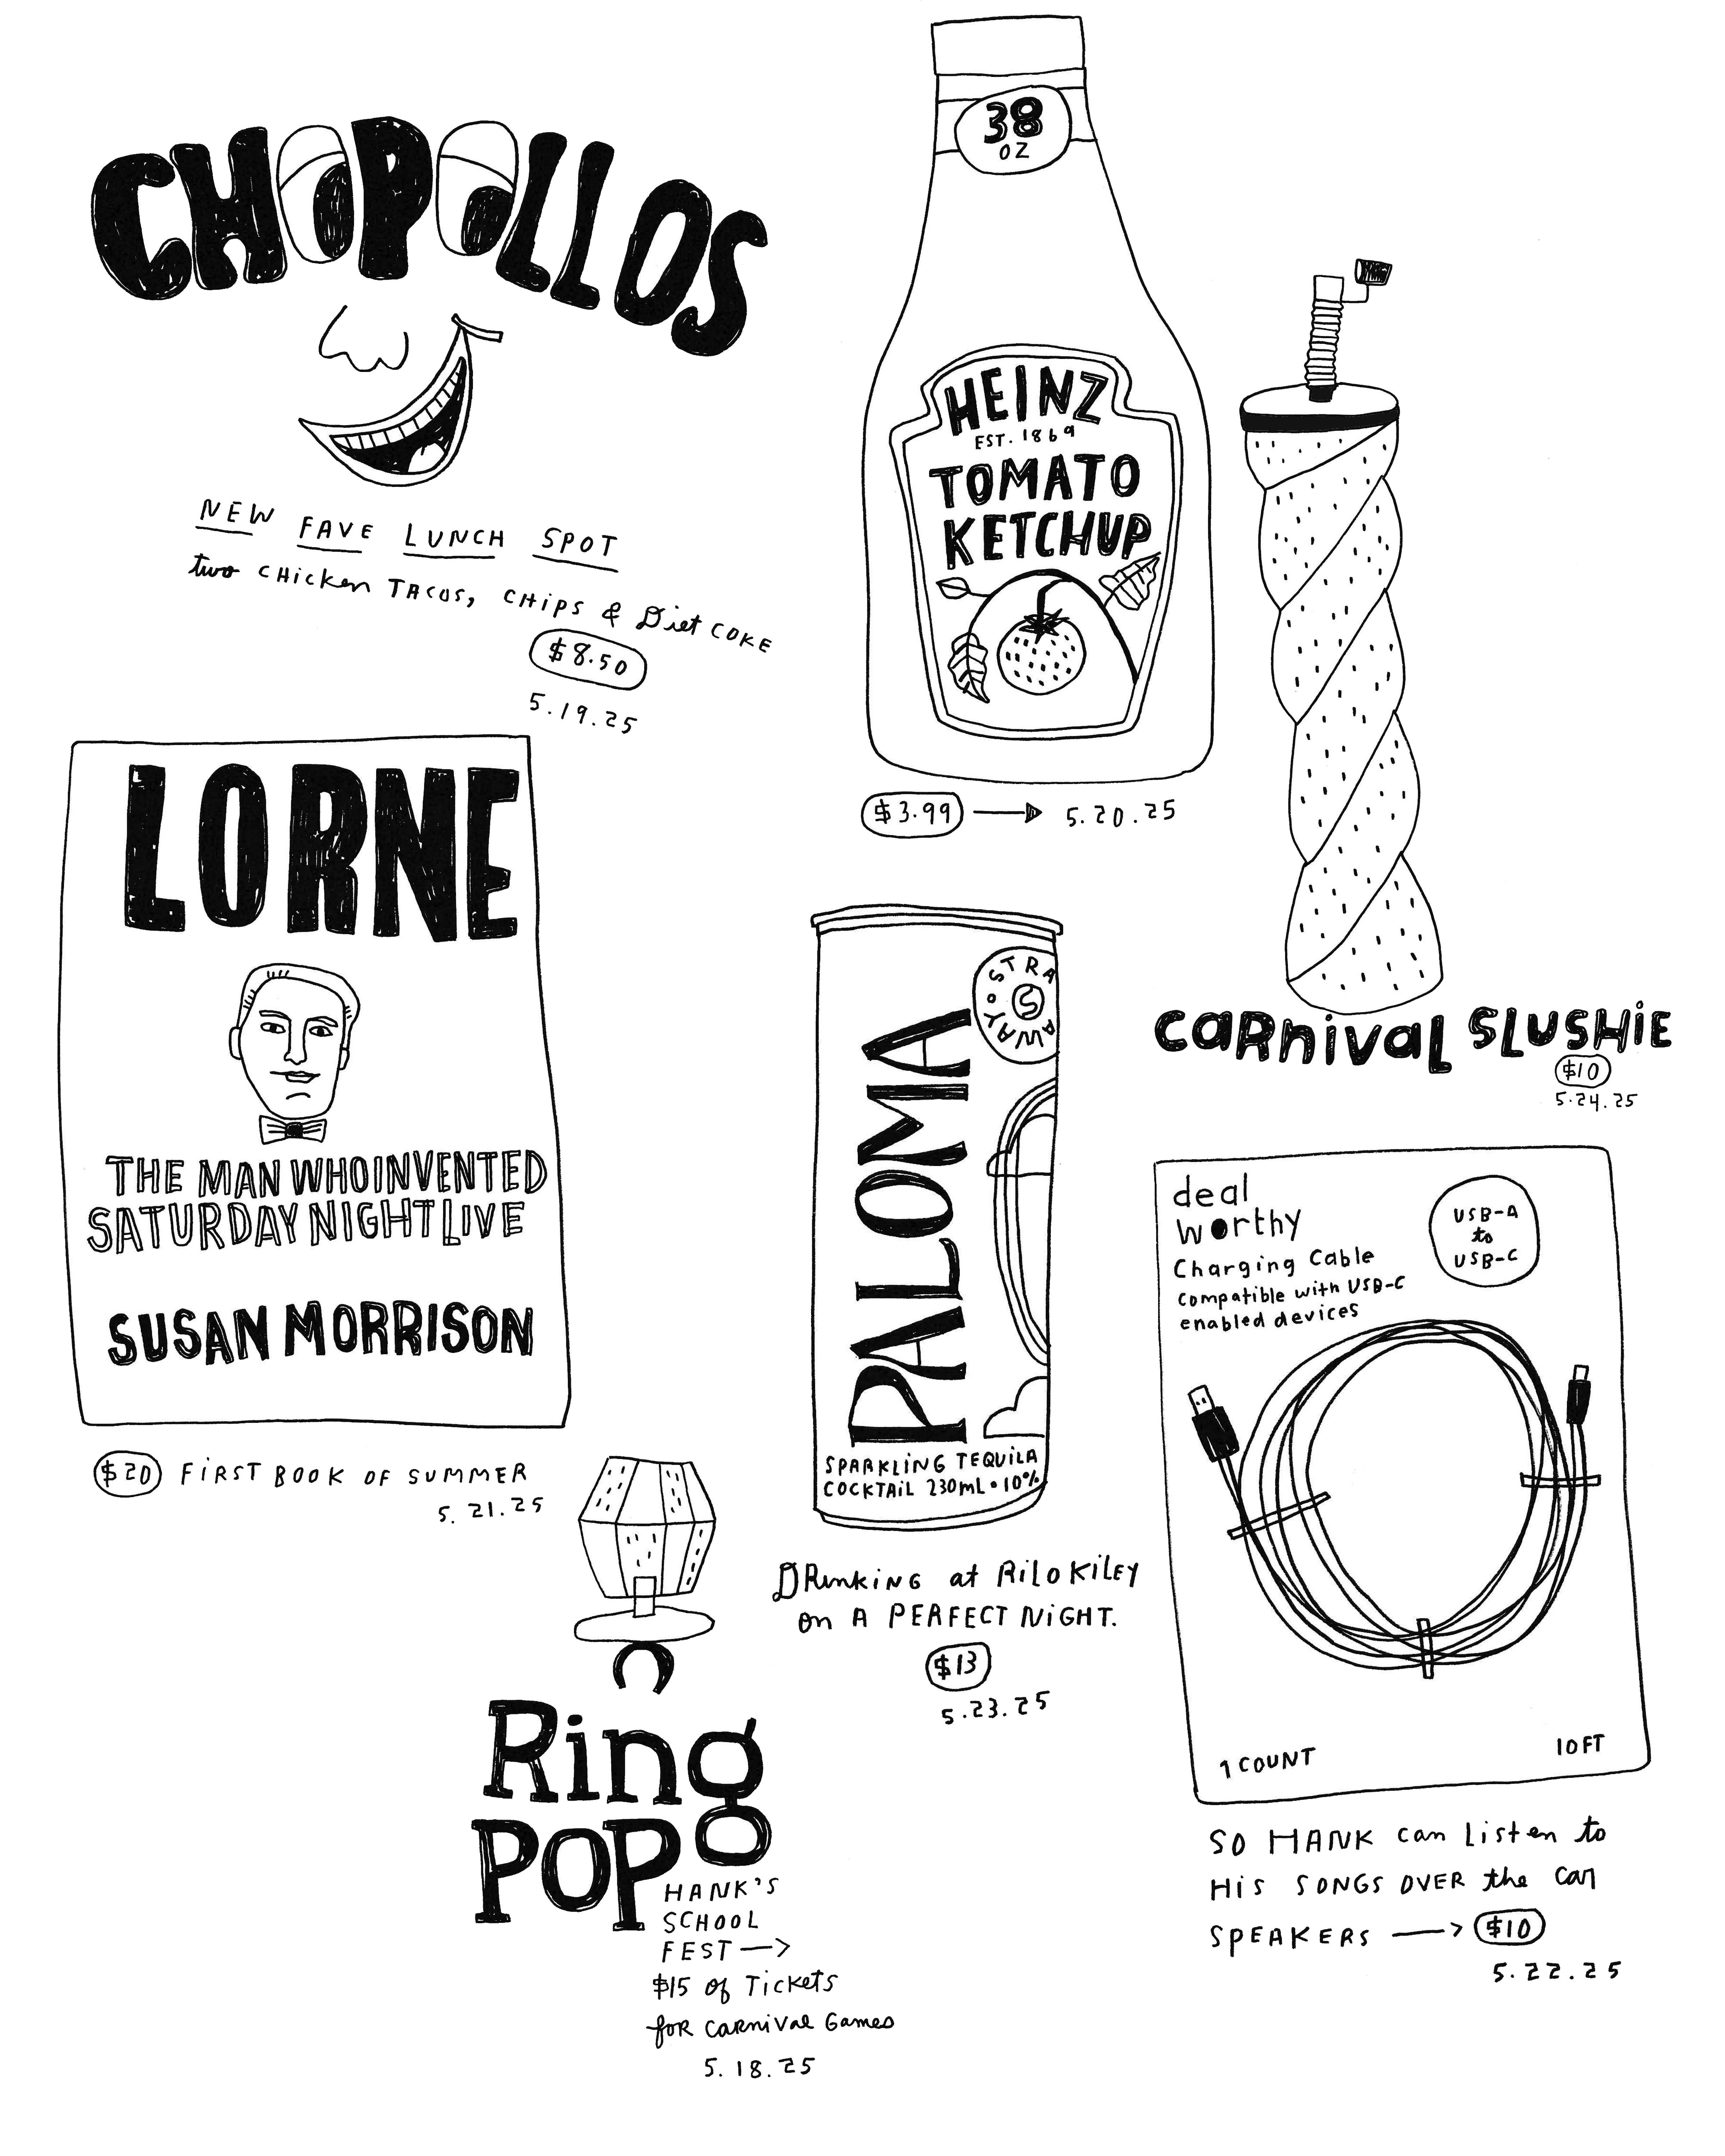 CHOPOLLOS
NEW FAVE LUNCH SPOT
two CHicken TACOS, CHiPS & Diet COKE
$8.50
5.19.25
38
OZ
HEINZ
EST. 1869
TOMATO
KETCHUP
$3.99 → 5.20.25
CARnival SLUSHiE
$10
5.24.25
LORNE
THE MAN WHO INVENTED
SATURDAY NIGHT LIVE
SUSAN MORRISON
$20 FiRST BOOK OF SUMMER
5.21.25
STRA
AWAY
S
PALOMA
SPARKLiNG TEQUiLA
COCKTAiL 230mL • 10%
DRinKiNG at RiLO KiLEY
on A PERFECT NiGHT.
$13
5.23.25
deal
worthy
Charging Cable
Compatible with USB-C
enabled devices
USB-A
to
USB-C
1 COUNT
10 FT
SO HANK can Listen to
HiS SONGS OVER the car
SPEAKERS → $10
5.22.25
Ring
POP
HANK'S
SCHOOL
FEST →
$15 of TickEtS
foR CARNiVAL GAMES
5.18.25